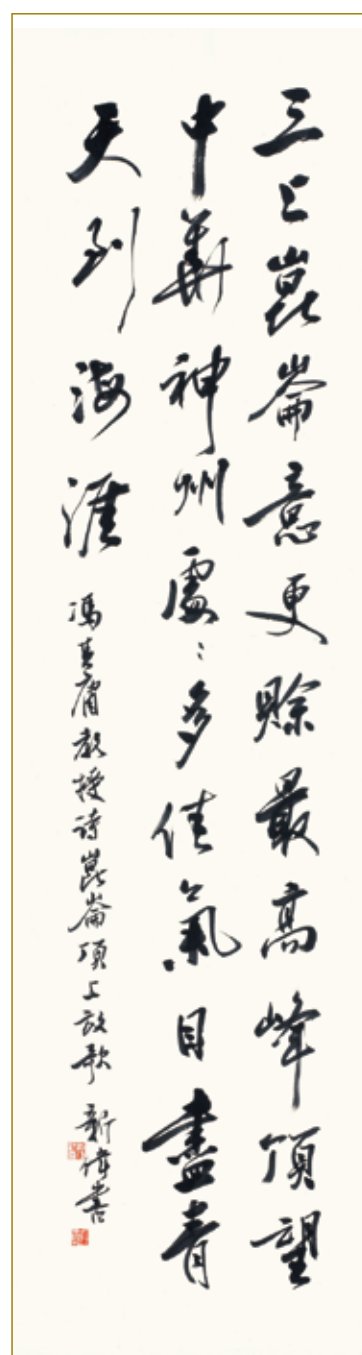 三上崑崙意更賒最高峰頂望
中華神州處〻多佳氣目盡青
天到海涯
馮其庸教授诗崑崙頂上放歌 新偉書